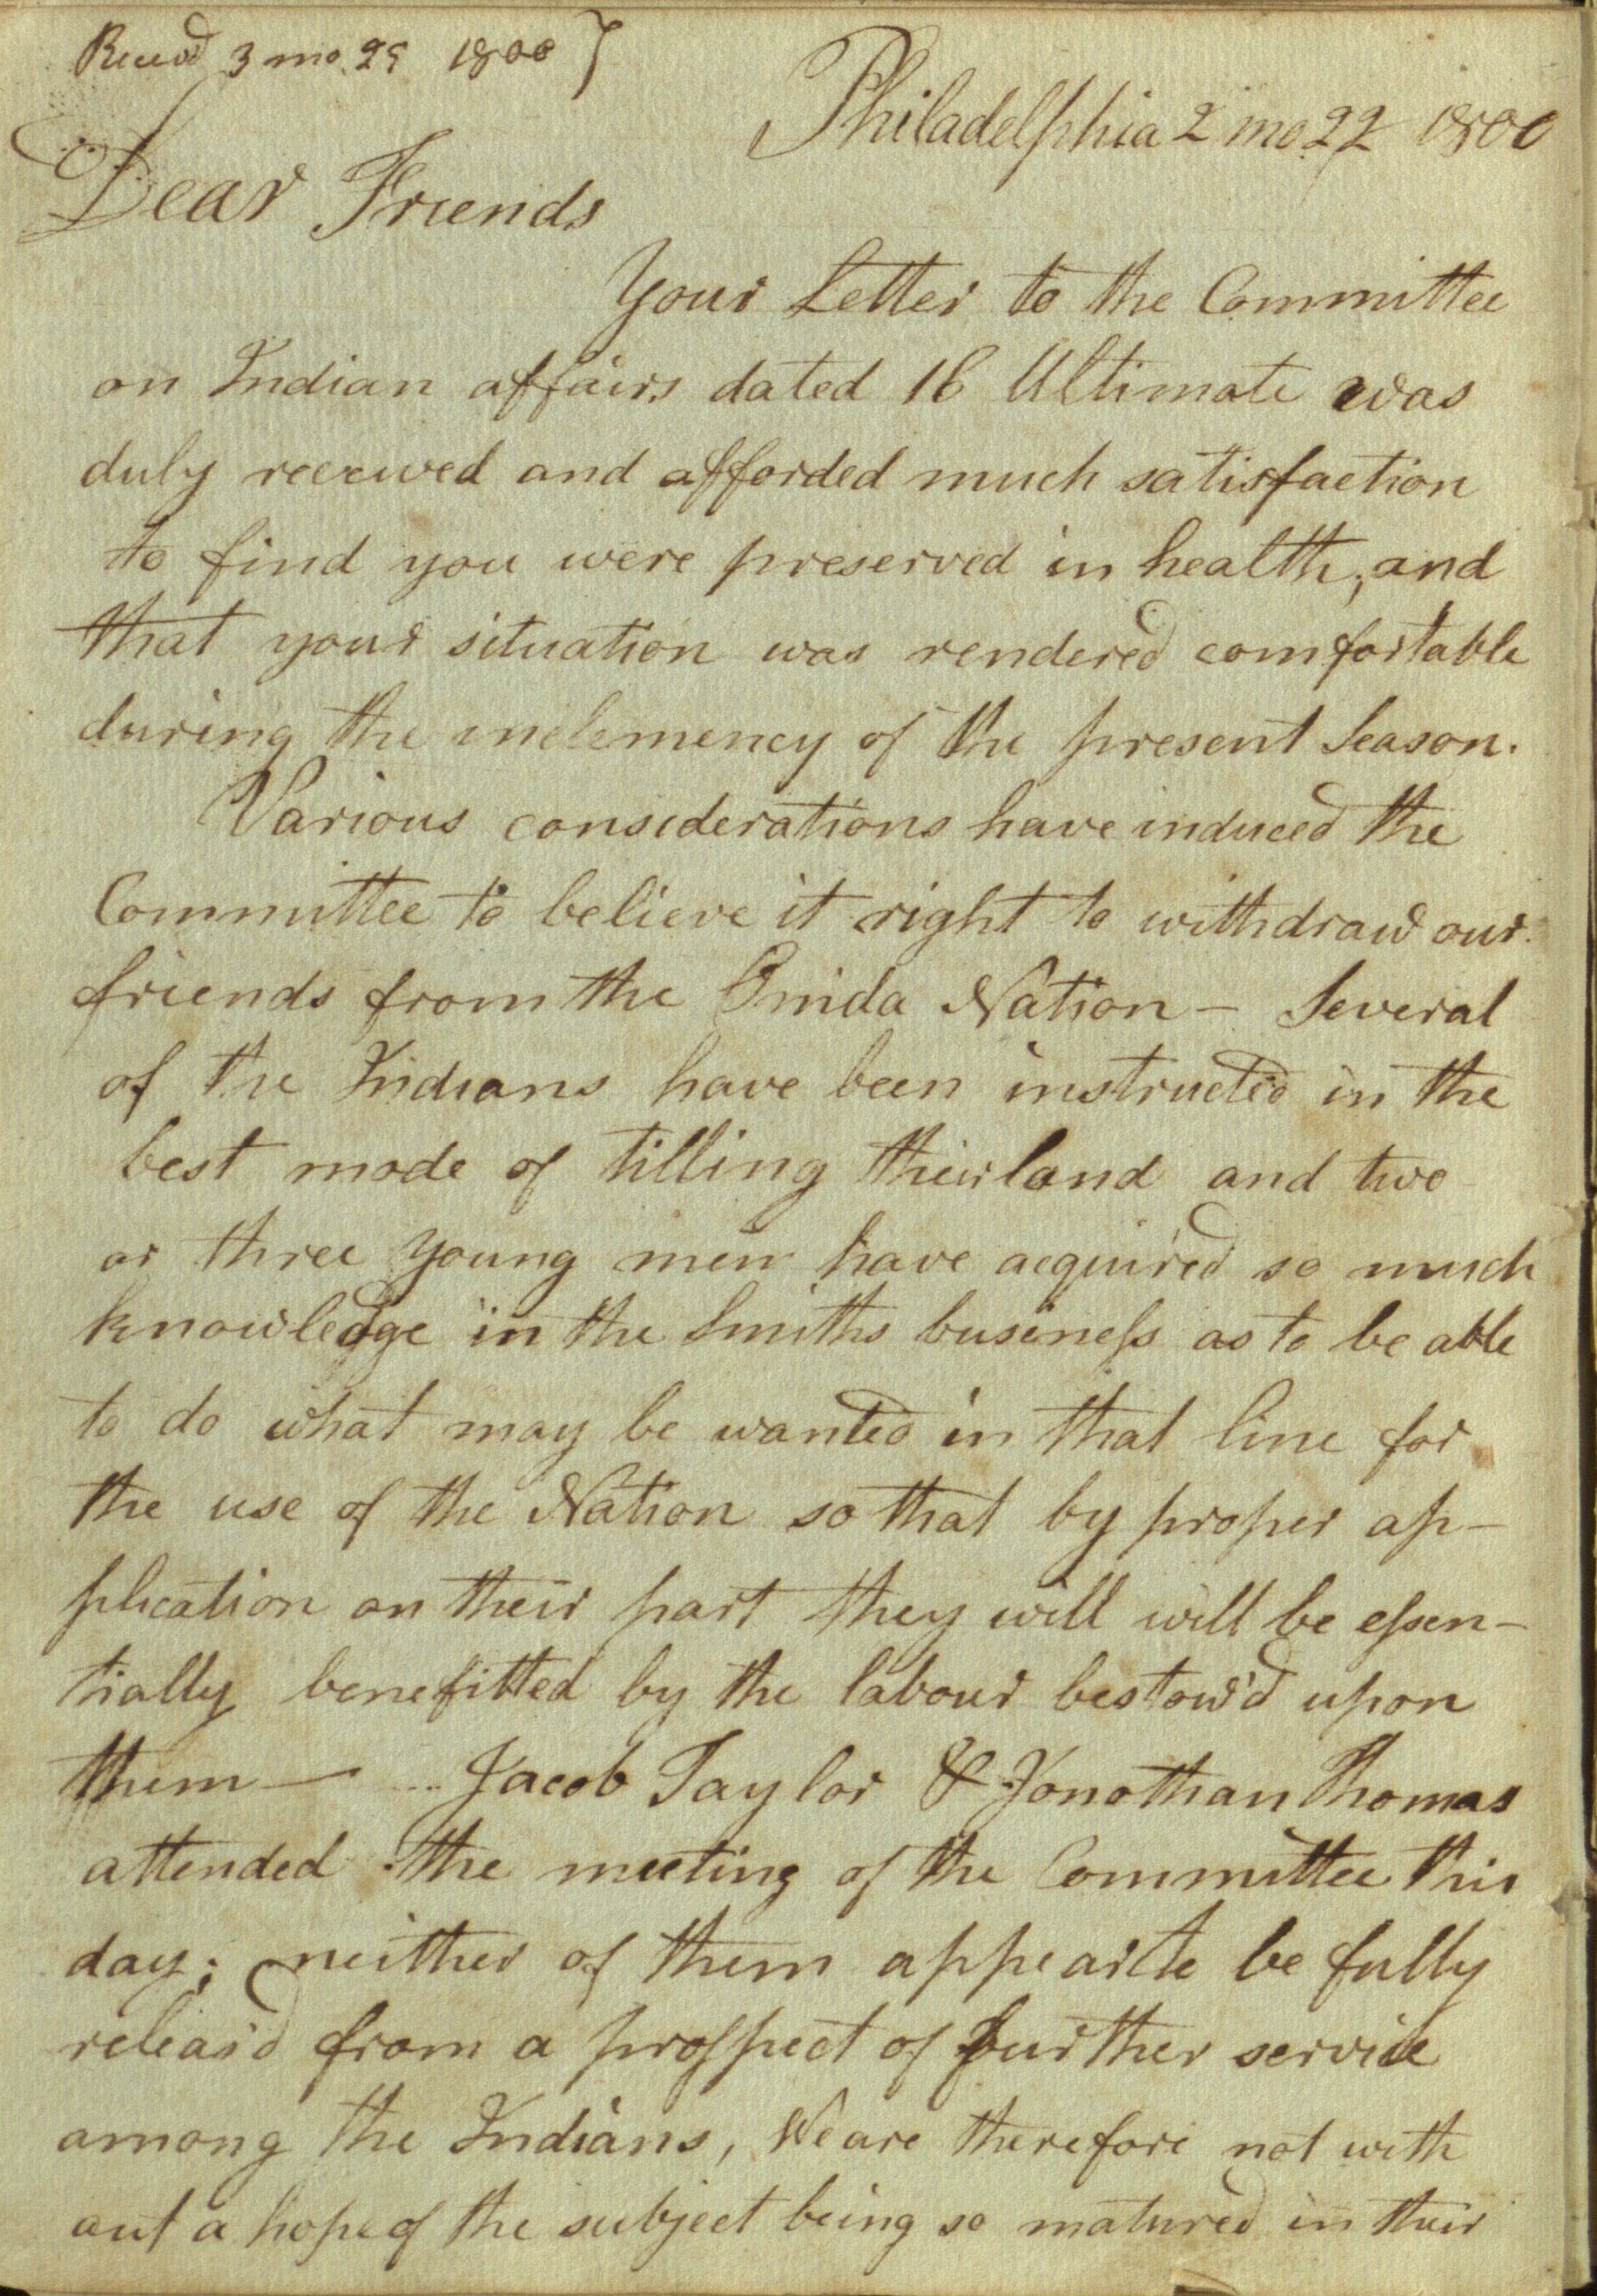 Recevd 3 mo. 29 1800
Philadelphia 2 mo 22 1800
Dear Friends
Your Letter to the Committee
on Indian affairs dated 16 Ultimate was
duly received and afforded much satisfaction
to find you were preserved in health, and
that your situation was rendered comfortable
during the inclemency of the present Season.
Various considerations have induced the
Committee to believe it right to withdraw our
friends from the Onida Nation — Several
of the Indians have been instructed in the
best mode of tilling their land and two
or three young men have acquired so much
knowledge in the Smiths business as to be able
to do what may be wanted in that line for
the use of the Nation so that by proper ap-
plication on their part they will will be essen-
tially benefitted by the labour bestow'd upon
them — Jacob Taylor & Jonathan Thomas
attended the meeting of the Committee this
day; neither of them appear to be fully
releas'd from a prospect of further service
among the Indians, We are therefore not with
out a hope of the subject being so matured in their